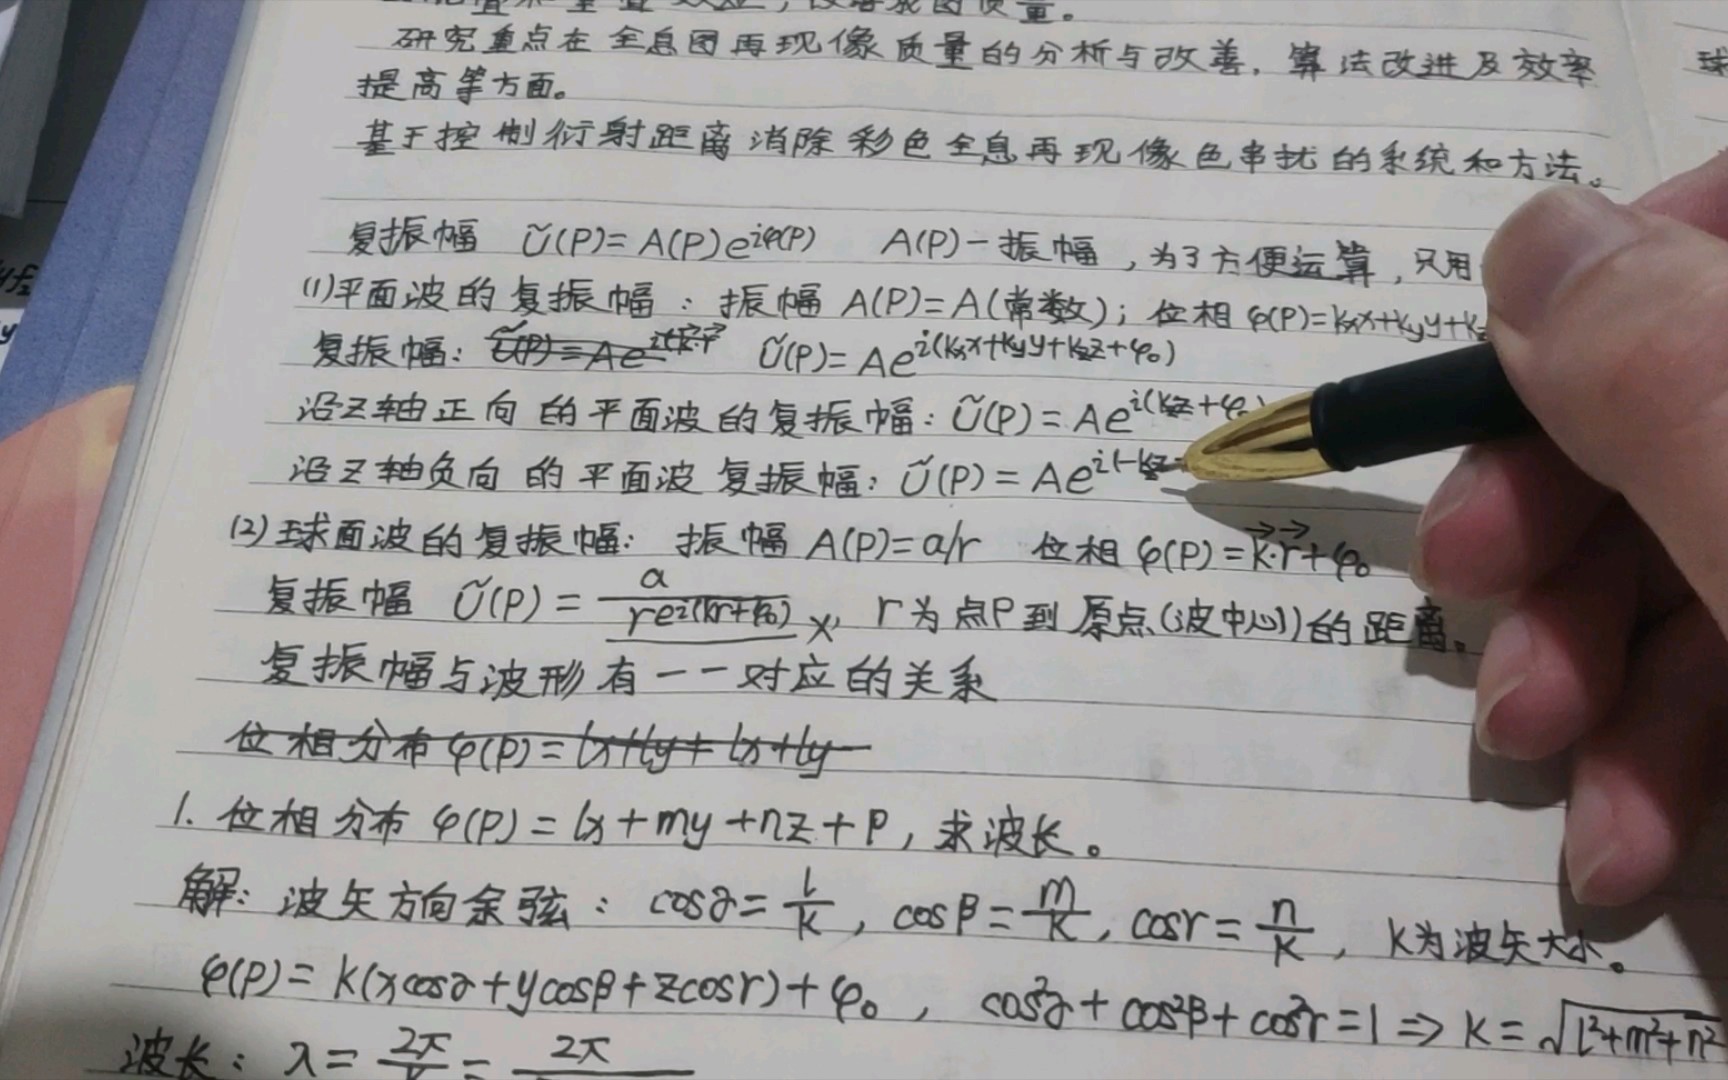 研究重点在全息图再现像质量的分析与改善,算法改进及效率
提高等方面。
基于控制衍射距离消除彩色全息再现像色串扰的系统和方法。
复振幅 Ũ(P)=A(P)e^{iφ(P)} A(P)-振幅,为了方便运算,只用
(1)平面波的复振幅:振幅 A(P)=A(常数);位相 φ(P)=kxx+kyy+k
复振幅: Ũ(P)=Ae^{i(kxx+kyy+kzz+φ₀)}
沿Z轴正向的平面波的复振幅:Ũ(P)=Ae^{i(kz+φ₀)}
沿Z轴负向的平面波复振幅:Ũ(P)=Ae^{i(-kz
(2)球面波的复振幅: 振幅 A(P)=a/r 位相 φ(P)=k⃗·r⃗+φ₀
复振幅 Ũ(P)=a/re^{i(kr+φ₀)} ×, r为点P到原点(波中心)的距离。
复振幅与波形有一一对应的关系
位相分布φ(P)=lx+ly+lx+ly
1. 位相分布 φ(P)=lx+my+nz+P,求波长。
解: 波矢方向余弦: cosα=l/k, cosβ=m/k, cosr=n/k, K为波矢大小。
φ(P)=k(xcosα+ycosβ+zcosr)+φ₀, cos²α+cos²β+cos²r=1⇒K=√l²+m²+n²
波长: λ=2π/k=2π
球